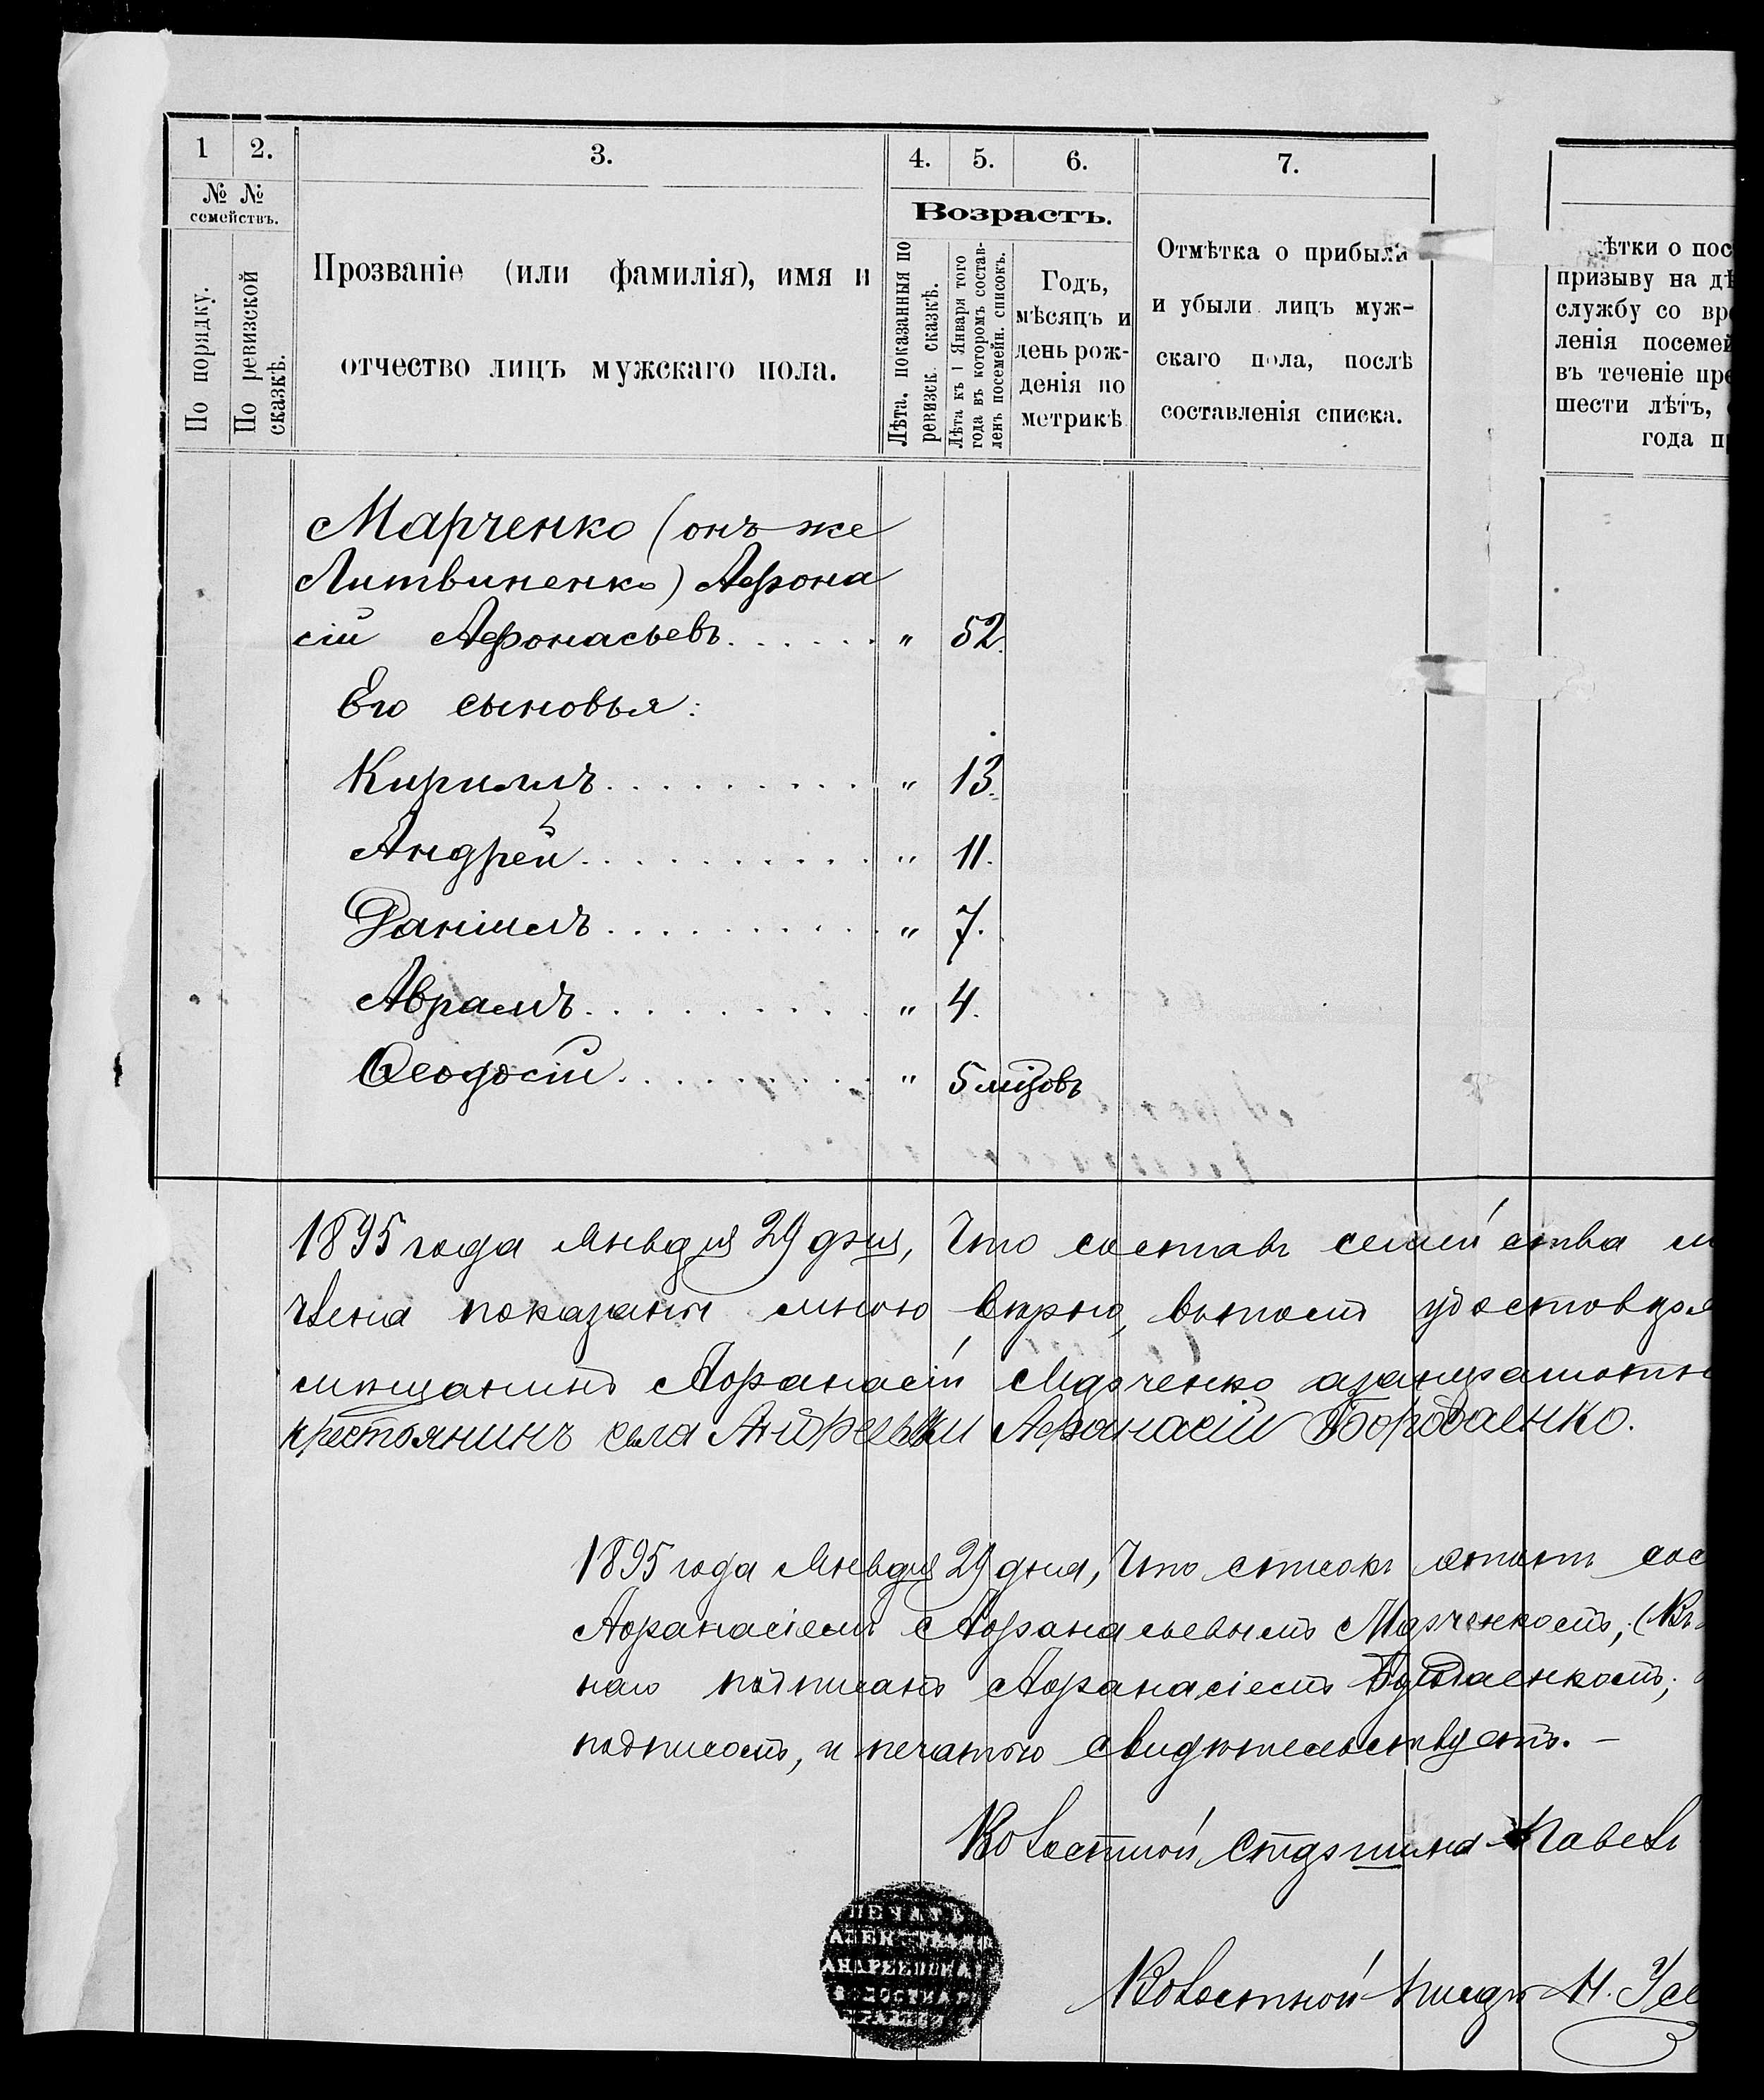 1
2.
3.
4.
5.
6.
7.
№ №
семействъ.
По порядку.
По ревизской
сказкѣ.
Прозваніе (или фамилія), имя и
отчество лицъ мужскаго пола.
Возрастъ.
Лѣта, показанныя по
ревизск. сказкѣ.
Лѣта къ 1 Января того
года въ которомъ состав-
ленъ посемейн. списокъ.
Годъ,
мѣсяцъ и
день рож-
денія по
метрикѣ
Отмѣтка о прибыли
и убыли лицъ муж-
скаго пола, послѣ
составленія списка.
ѣтки о пос
призыву на дѣ
службу со вре
ленія посемей
въ теченіе пре
шести лѣтъ,
года п
Марченко (онъ же
Литвиненко) Афона
сій Афонасьевъ . . . . . . " 52.
Его сыновья:
Кириллъ . . . . . . . . . " 13.
Андрей . . . . . . . . . . " 11.
Даніилъ . . . . . . . . . . " 7.
Аврамъ . . . . . . . . . . " 4.
Ѳеодосій . . . . . . . . . " 5 мцовъ
1895 года Января 29 дня, Что составъ семейства м
показанъ мною вѣрно, въ томъ удостовѣря
мѣщанинъ Афанасій Марченко а
крестоянинъ села Андреевки Афанасій Бородаенко.
1895 года Января 29 дня, Что списокъ этотъ сос
Афанасіемъ Афанасьевымъ Марченкомъ,
наго подписанъ Афанасіемъ Бородаенкомъ;
подписомъ, и печатью свидѣтельствуетъ. –
Волостной Старшина Павелъ
ПЕЧАТЬ
АНДРЕЕВСКА
ВОЛОСТНАГ
Волостной писарь Н. Усе